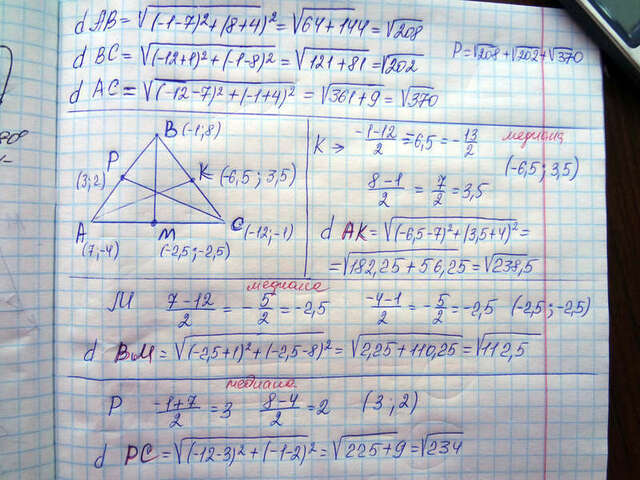 d AB = √((-1-7)²+(8+4)²) = √(64+144) = √208
d BC = √((-12+1)²+(-1-8)²) = √(121+81) = √202
P=√208+√202+√370
d AC = √((-12-7)²+(-1+4)²) = √(361+9) = √370
B (-1; 8)
P
(3; 2)
K (-6,5 ; 3,5)
A
(7,-4)
M
(-2,5 ; -2,5)
C (-12; -1)
K → (-1-12)/2 = -6,5 = -13/2 медиана
(-6,5 ; 3,5)
(8-1)/2 = 7/2 = 3,5
d AK = √((-6,5-7)²+(3,5+4)²) =
= √(182,25+56,25) = √238,5
медиана
M (7-12)/2 = -5/2 = -2,5 (-4-1)/2 = -5/2 = -2,5 (-2,5 ; -2,5)
d BM = √((-2,5+1)²+(-2,5-8)²) = √(2,25+110,25) = √112,5
медиана
P (-1+7)/2 = 3 (8-4)/2 = 2 (3 ; 2)
d PC = √((-12-3)²+(-1-2)²) = √(225+9) = √234